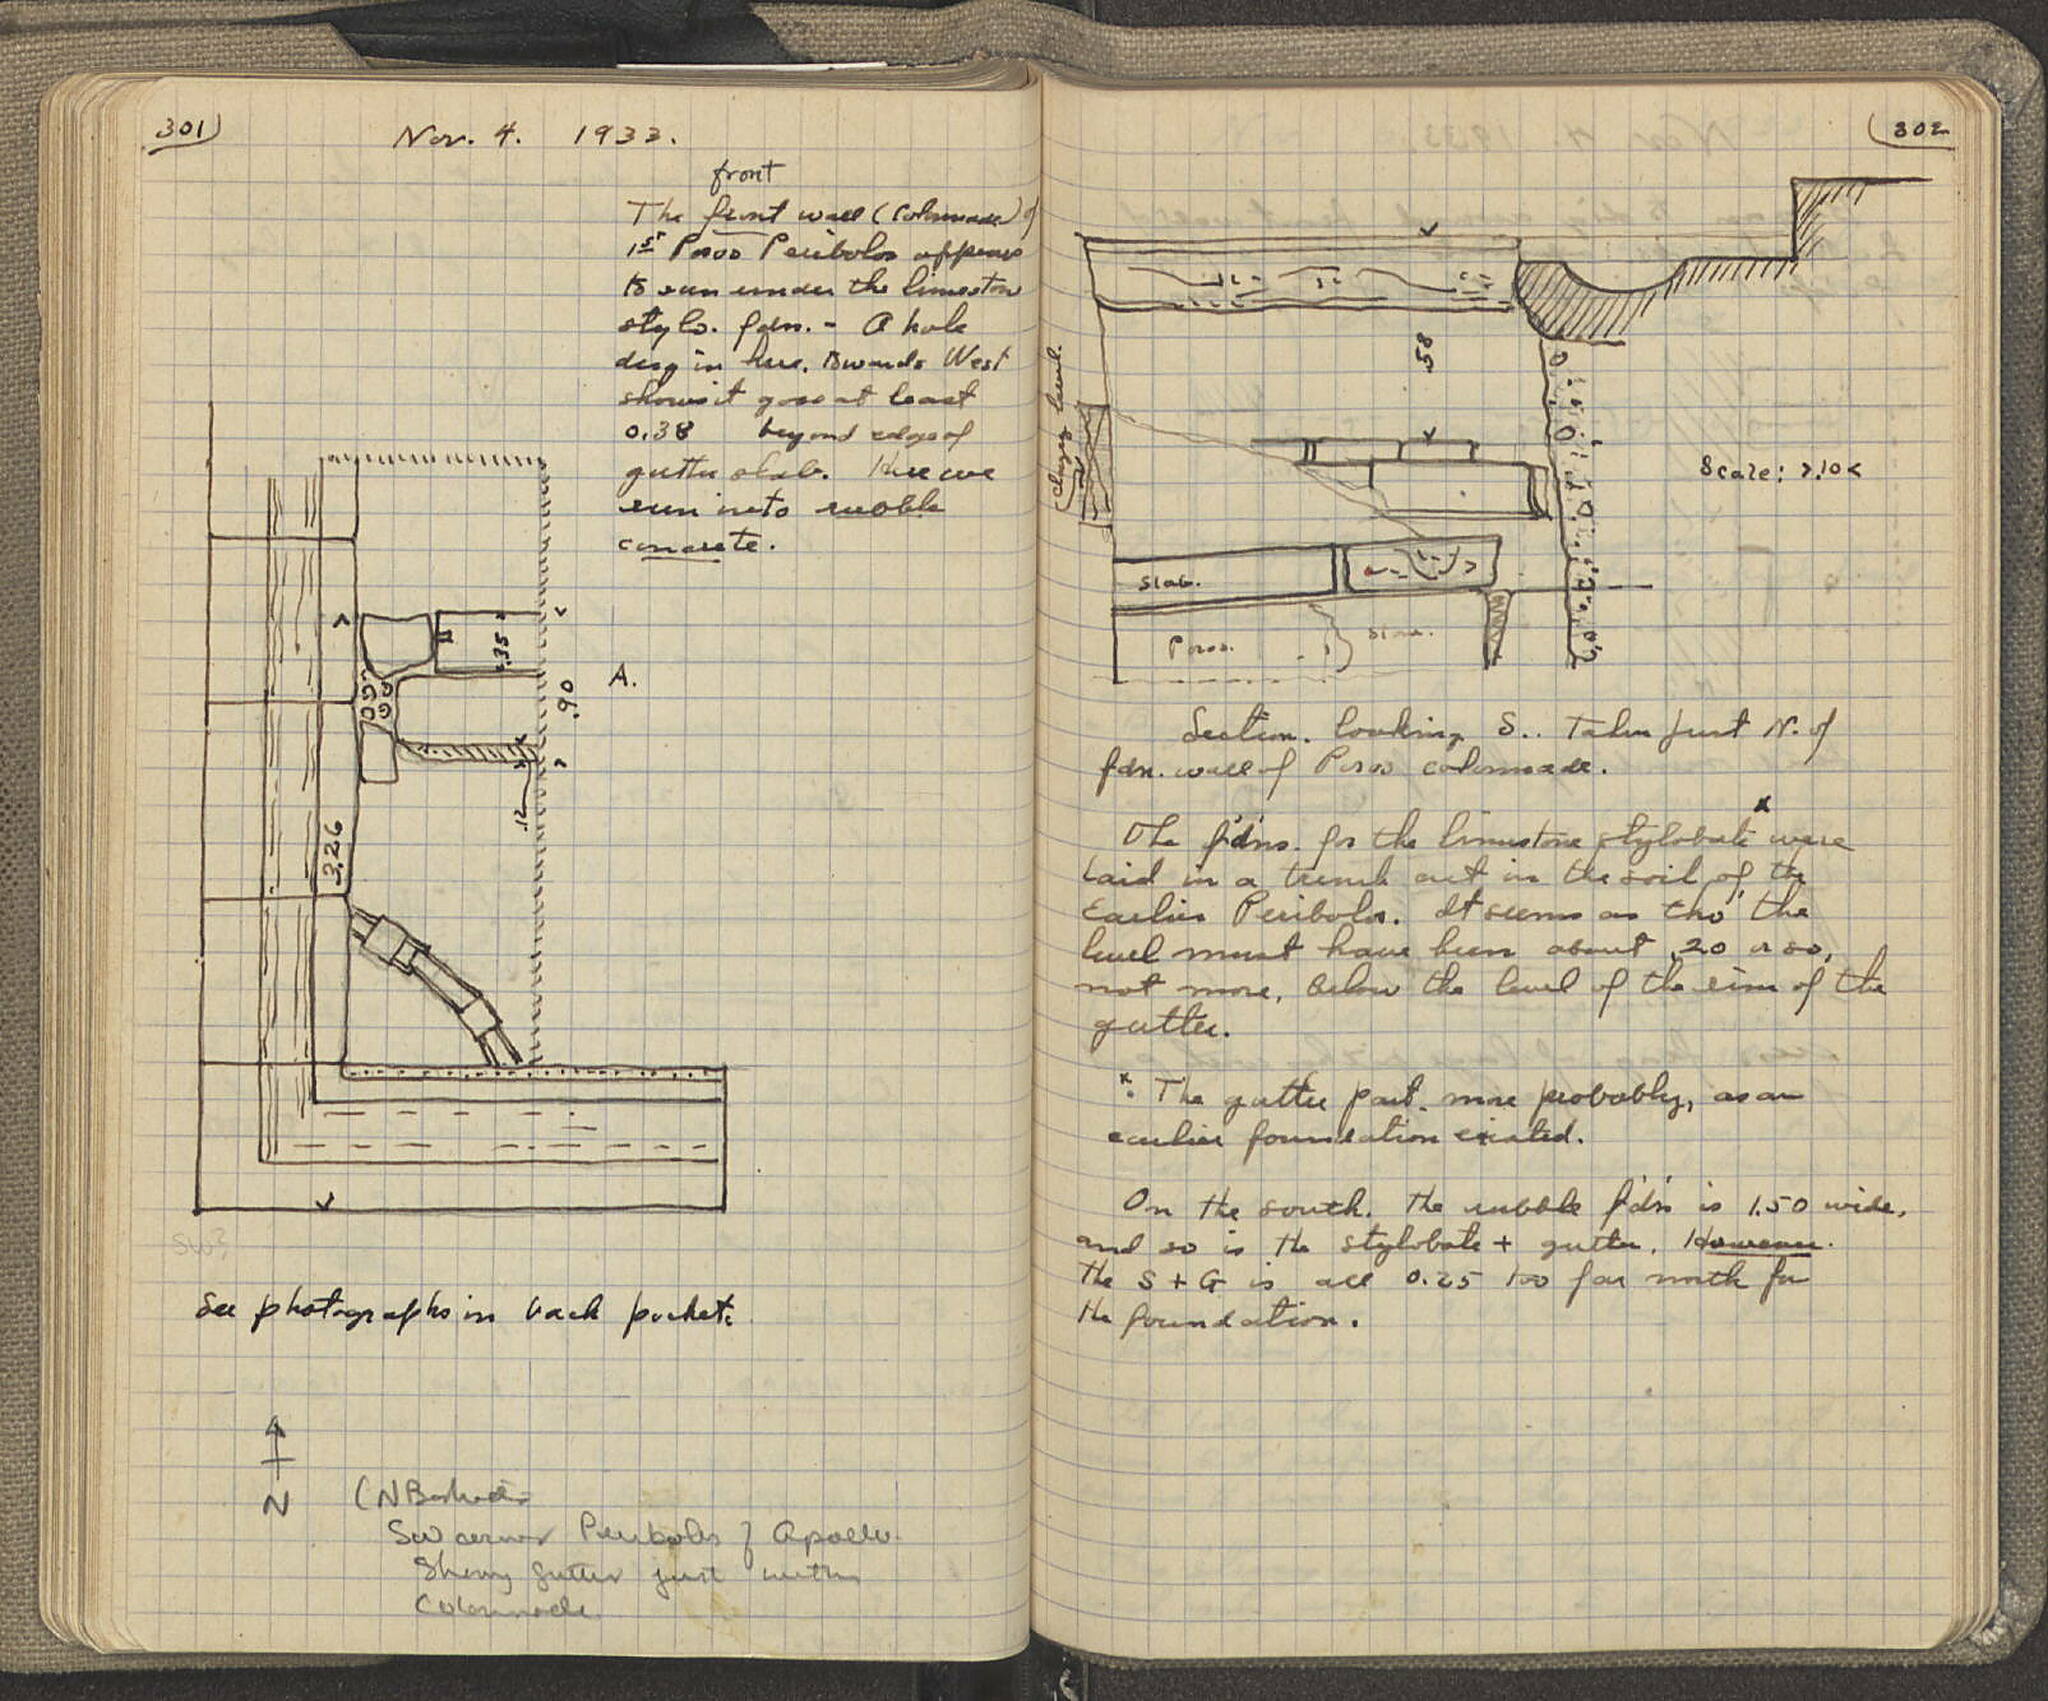 301
Nov. 4. 1933.
front
The front wall (Colonnade) of
1st Poros Peribolos appears
to run under the limestone
stylo. fdn. - A hole
dug in here. towards West
shows it goes at least
0.38 beyond edge of
gutter slab. Here we
run into rubble
concrete.
.35
.90
A.
.12
3.26
SW?
See photographs in back pocket.
N
(N
SW corner Peribolos of Apollo.
Showing gutter just within
Colonnade.
302
.58
level.
Scale: >.10<
Slab.
Poros.
Section. looking S.. Taken just N. of
fdn. wall of Poros colonnade.
The f'd'ns. for the limestone stylobate x were
laid in a trench cut in the soil of the
Earlier Peribolos. It seems as tho' the
level must have been about .20 or so,
not more, below the level of the rim of the
gutter.
x. The gutter part. more probably, as an
earlier foundation existed.
On the south. the rubble f'd'n is 1.50 wide,
and so is the stylobate + gutter. However.
the S + G is all 0.25 too far north for
the foundation.